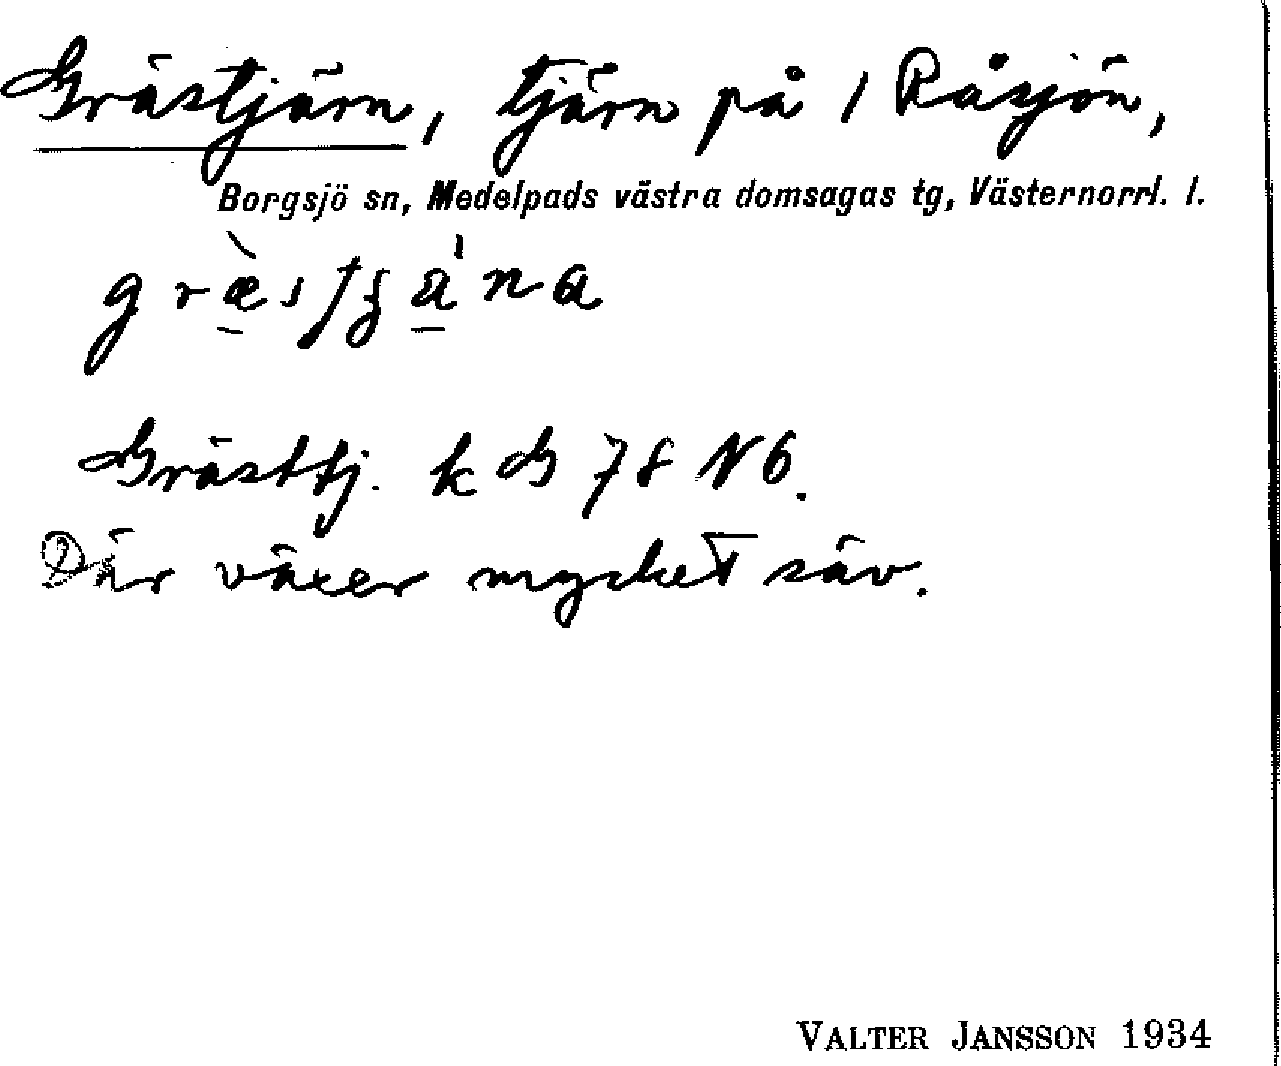 Grästjärn, tjärn på 1 Råsjön,
Borgsjö sn, Medelpads västra domsagas tg, Västernorrl. l.
Grästtj. k G 78 N 6.
Där växer mycket säv.
VALTER JANSSON 1934